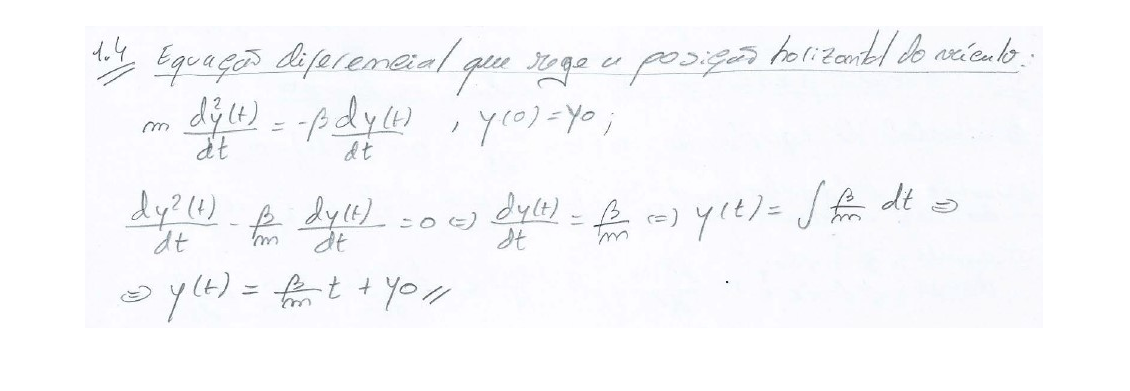 1.4 Equação diferencial que rege a posição horizontal do veículo:
m dy²(t)/dt = -β dy(t)/dt , y(0) = y0 ;
dy²(t)/dt - β/m dy(t)/dt = 0 (=) dy(t)/dt = β/m (=) y(t) = ∫ β/m dt (=)
(=) y(t) = β/m t + y0 //